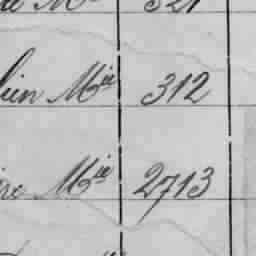 Mie 321
lien Mie 312
ire Mie 2713